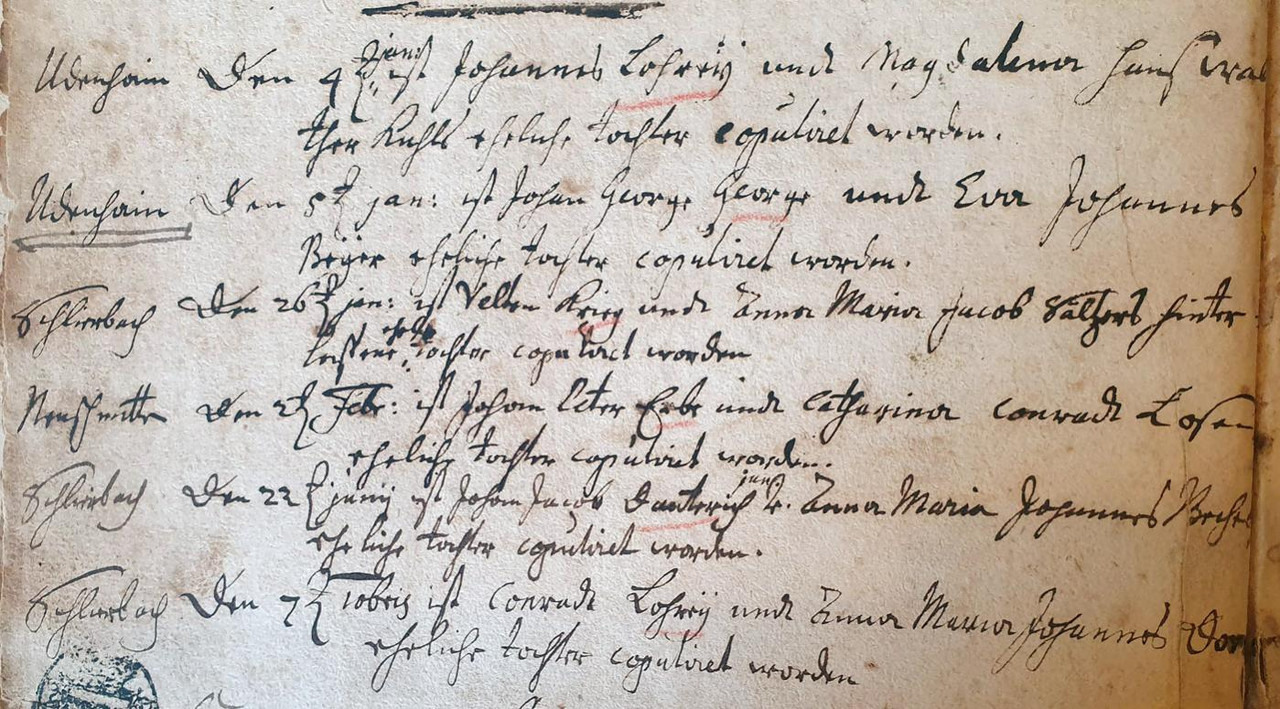 Udenhain Den 4t. Janu ist Johannes Lohreÿ undt Magdalena Hanß Wal
ther Ruhls eheliche tochter copuliret worden.
Udenhain Den 8t jan: ist Johan George George undt Eva Johannes
eheliche tochter copuliret worden.
Schlierbach Den 26t jan: ist Velten Krieg undt Anna Maria Jacob Sältzers hinter
lassene ehel. tochter copuliret worden
Neuschmitte Den 2t Febr: ist Johan Peter Erbe undt Catharina Conradt Losen
eheliche tochter copuliret worden.
Schlierbach Den 22t junij ist Johan Jacob Dauterich jun: u. Anna Maria Johannes
eheliche tochter copuliret worden.
Schlierbach Den 7t 10bris ist Conradt Lohreÿ undt Anna Maria Johannes
eheliche tochter copuliret worden